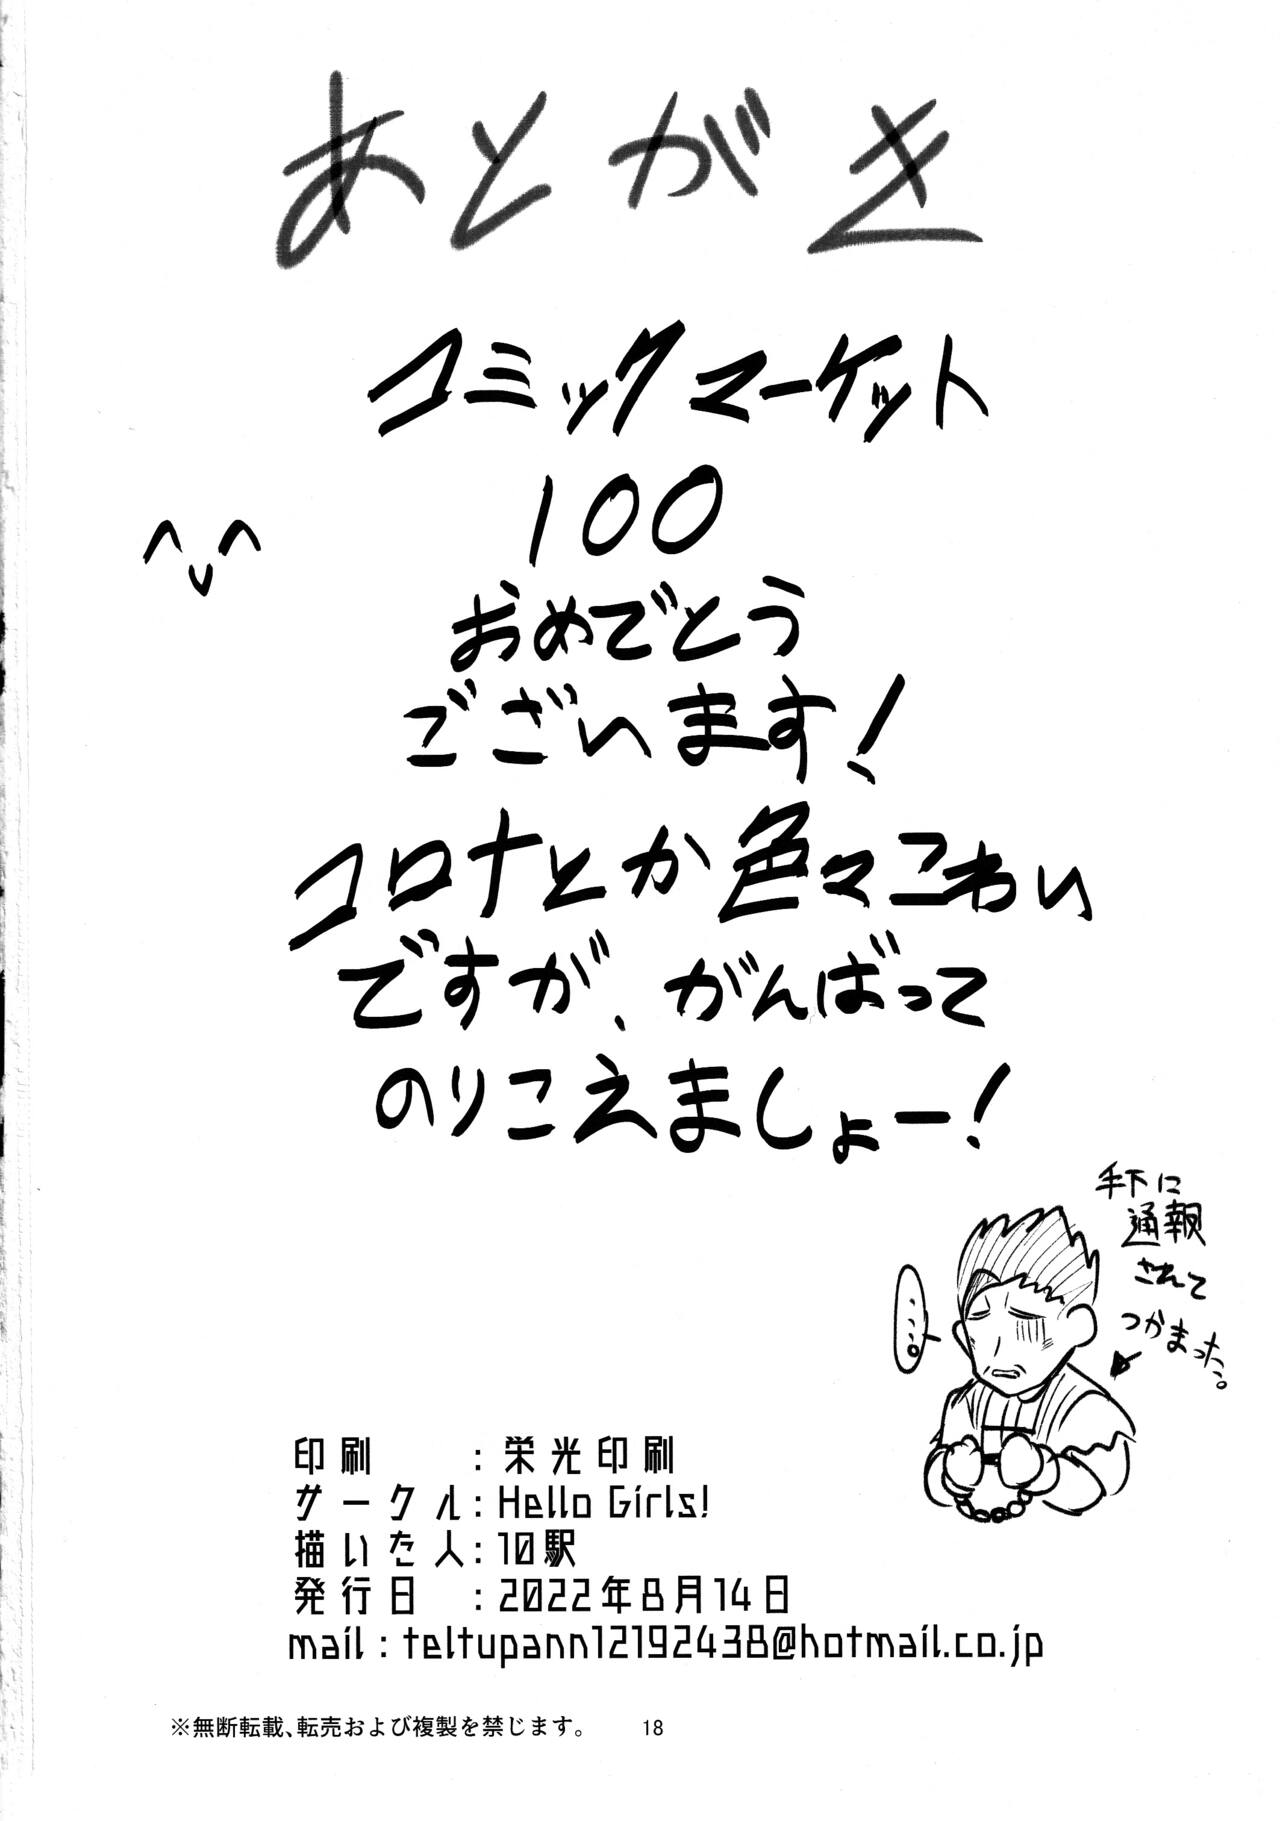 あとがき
コミックマーケット
100
おめでとう
ございます!
コロナとか色々こわい
ですが、がんばって
のりこえましょー!
手下に
通報
されて
つかまった。
……。
印刷 : 栄光印刷
サークル : Hello Girls!
描いた人 : 10駅
発行日 : 2022年8月14日
mail : teltupann12192438@hotmail.co.jp
※無断転載、転売および複製を禁じます。
18